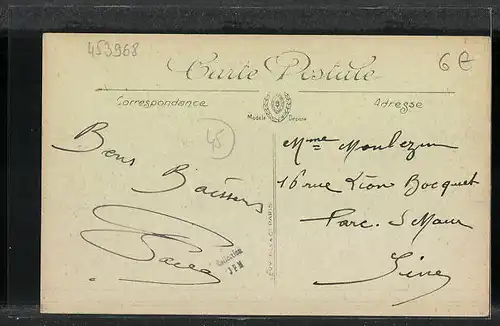 453968
6€
Carte Postale
Correspondance
Adresse
Modèle Déposé
45
Bons Baisers
Mme Moulezun
16 rue Léon Bocquet
Parc. S Maur
Seine
Collection
JPM